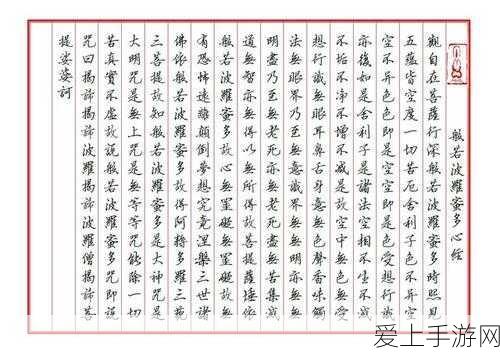 般若波羅蜜多心經
觀自在菩薩行深般若波羅蜜多時照見
五蘊皆空度一切苦厄舍利子色不异空
空不异色色即是空空即是色受想行識
亦復如是舍利子是諸法空相不生不滅
不垢不淨不增不減是故空中無色無受
想行識無眼耳鼻舌身意無色聲香味觸
法無眼界乃至無意識界無無明亦無無
明盡乃至無老死亦無老死盡無苦集滅
道無智亦無得以無所得故菩提薩埵依
般若波羅蜜多故心無罣礙無罣礙故無
有恐怖遠離顛倒夢想究竟涅槃三世諸
佛依般若波羅蜜多故得阿耨多羅三藐
三菩提故知般若波羅蜜多是大神咒是
大明咒是無上咒是無等等咒能除一切
苦真實不虛故說般若波羅蜜多咒即說
咒曰揭諦揭諦波羅揭諦波羅僧揭諦菩
提娑婆訶
爱上手游网